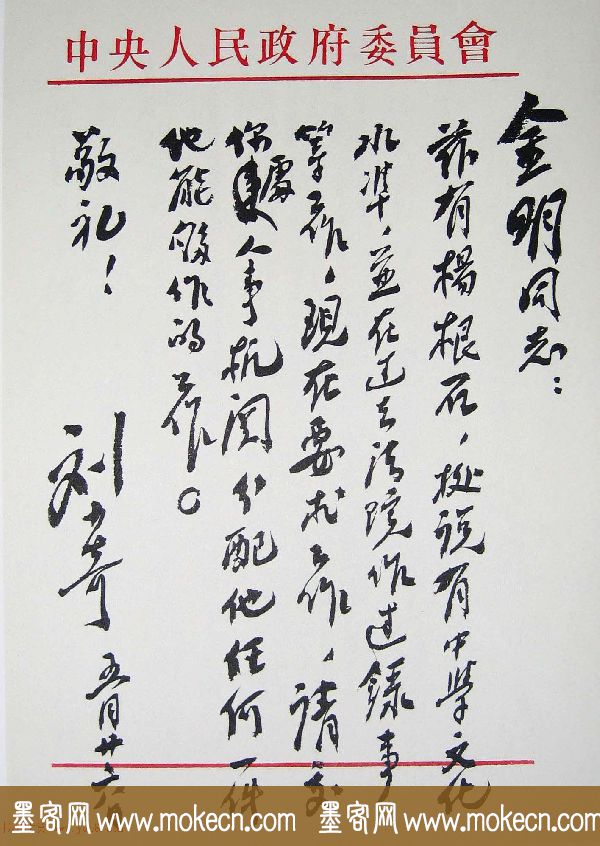 中央人民政府委員會
金明同志：
茲有楊根石，据説有中學文化
水準，並在过去法院作过錄事
等工作，現在要求工作，請交
你處人事机関分配他任何一件
他能够作的工作。
敬礼！
刘少奇
五月廿
墨客网 www.mokecn.com 墨客网 www.mokecn.com